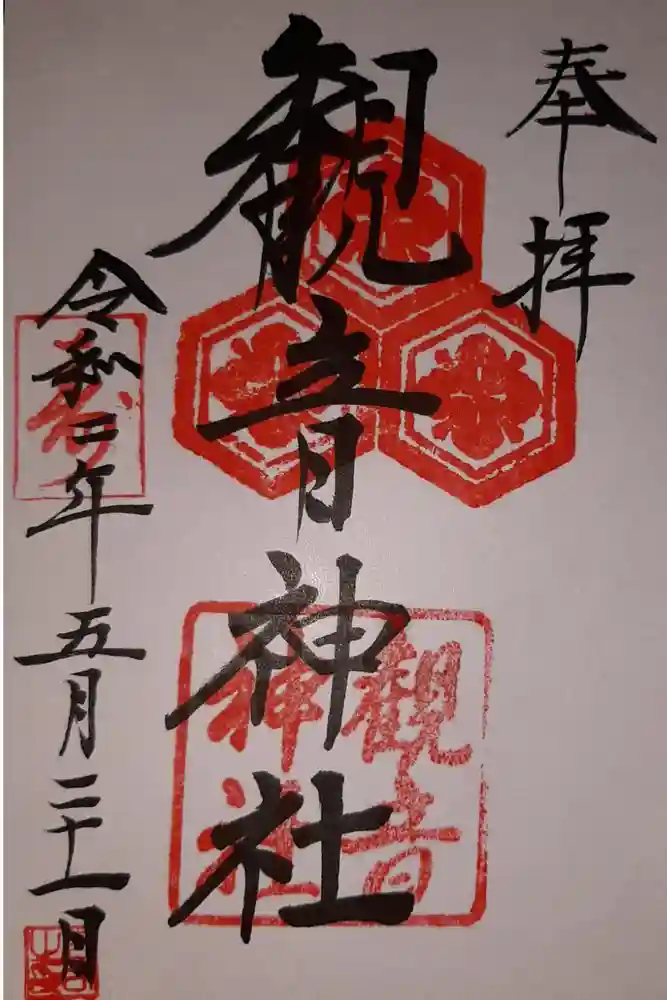 奉拝
観音神社
令和二年五月三十一日
觀音
神社